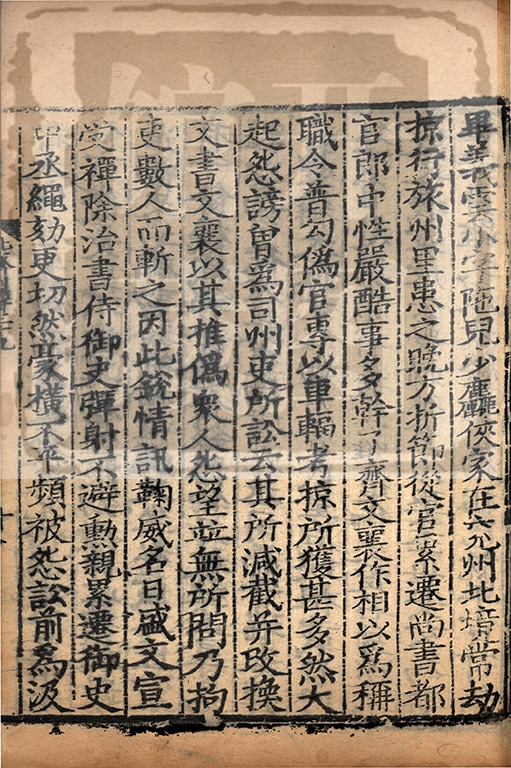 畢義雲小字陁兒少麤俠家在兖州北境常劫
掠行旅州里患之晚方折節從官累遷尚書都
官郎中性嚴酷事多幹了齊文襄作相以爲稱
職令普勾僞官專以車輻考掠所獲甚多然大
起怨謗曽爲司州吏所訟云其所減截并改換
文書文襄以其推僞衆人怨望並無所問乃拘
吏數人而斬之因此銳情訊鞠威名日盛文宣
受禪除治書侍御史彈射不避勲親累遷御史
中丞繩劾更切然豪横不平頻被怨訟前爲汲